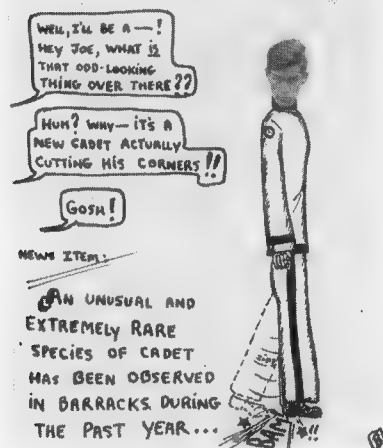 WELL, I'LL BE A —!
HEY JOE, WHAT IS
THAT ODD-LOOKING
THING OVER THERE??
HUH? WHY— IT'S A
NEW CADET ACTUALLY
CUTTING HIS CORNERS!!
GOSH!
NEWS ITEM:
AN UNUSUAL AND
EXTREMELY RARE
SPECIES OF CADET
HAS BEEN OBSERVED
IN BARRACKS DURING
THE PAST YEAR...